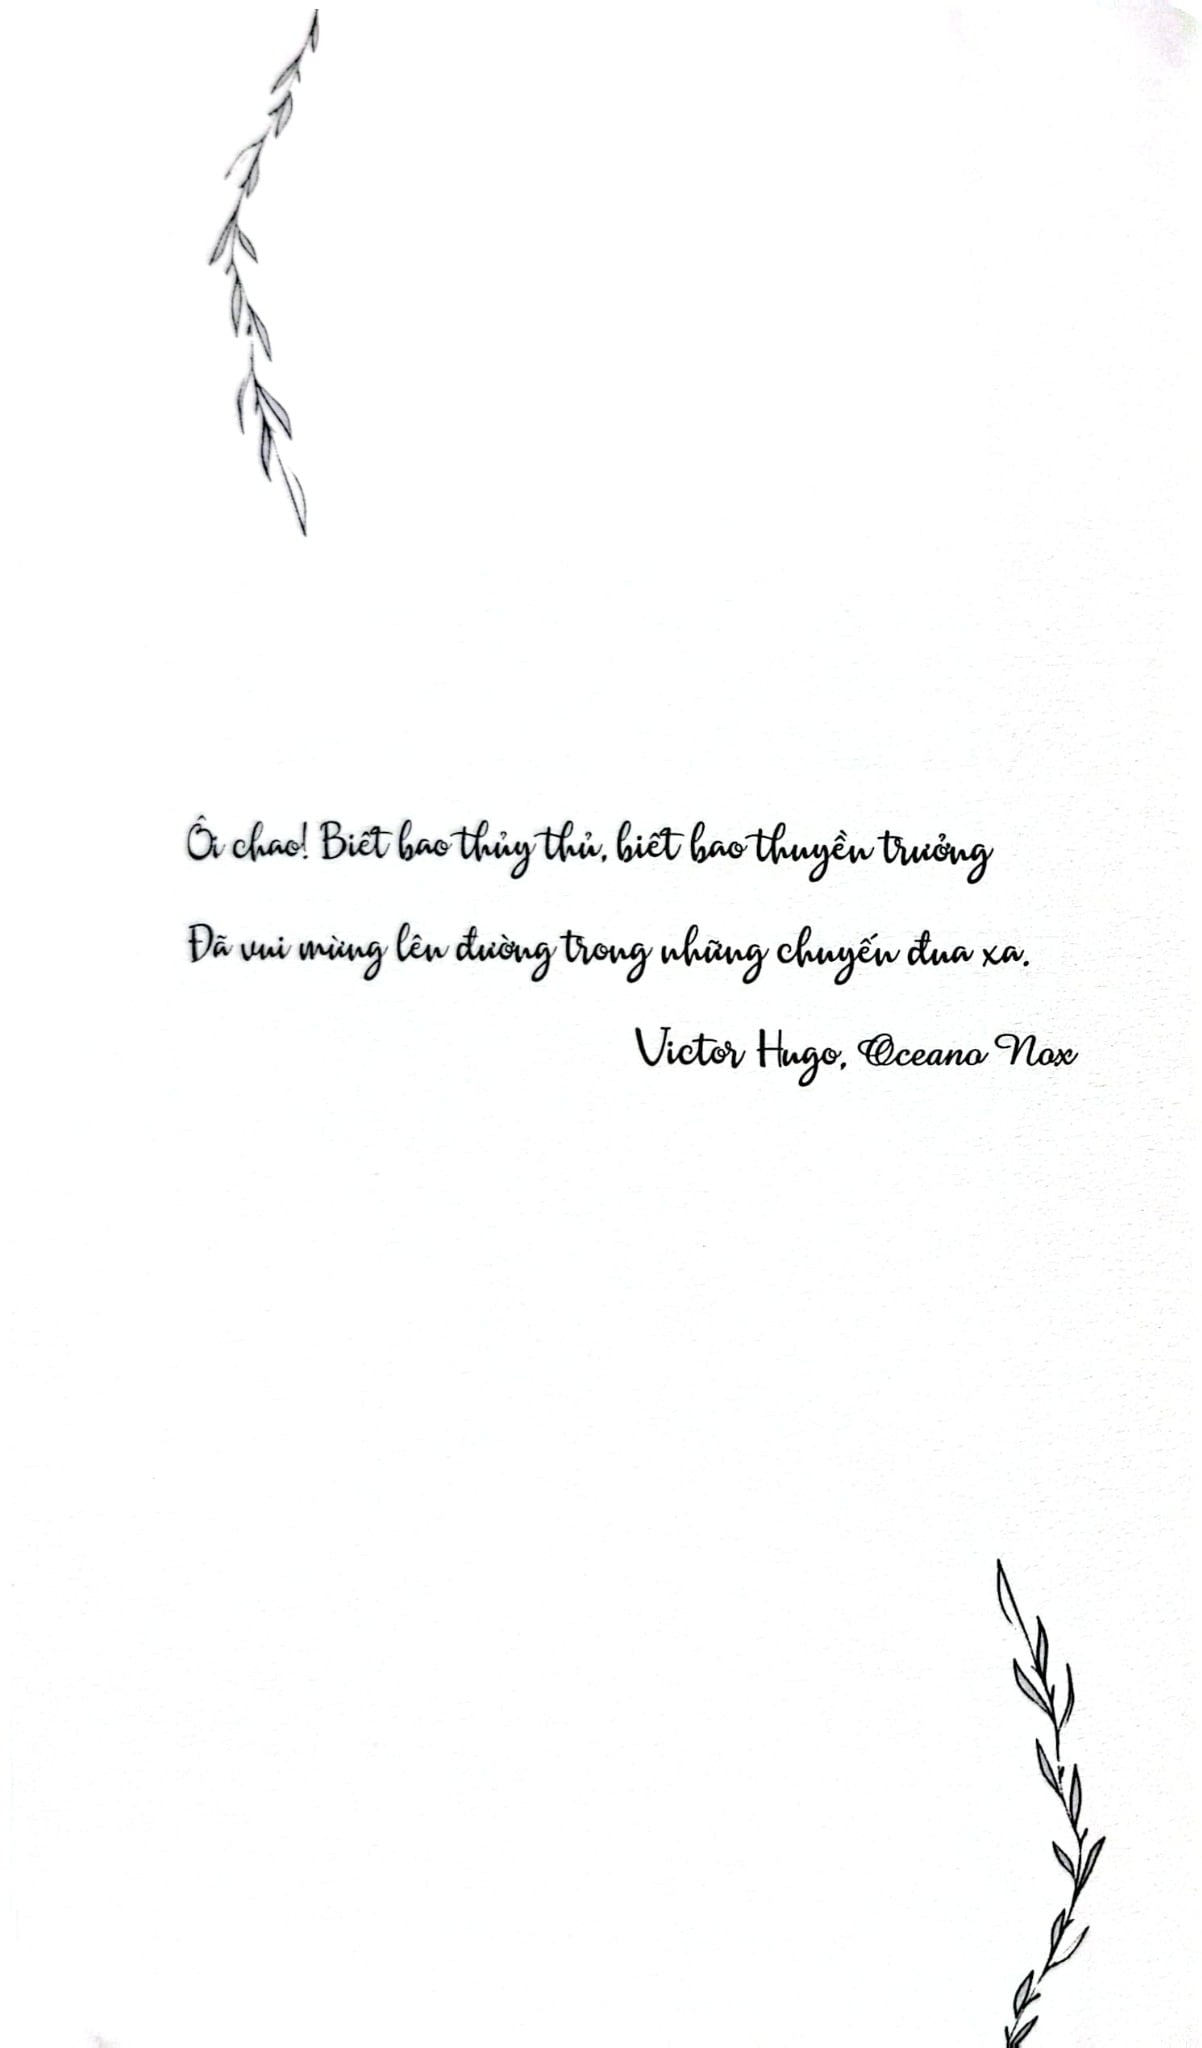 Ôi chao! Biết bao thủy thủ, biết bao thuyền trưởng
Đã vui mừng lên đường trong những chuyến đua xa.
Victor Hugo, Oceano Nox